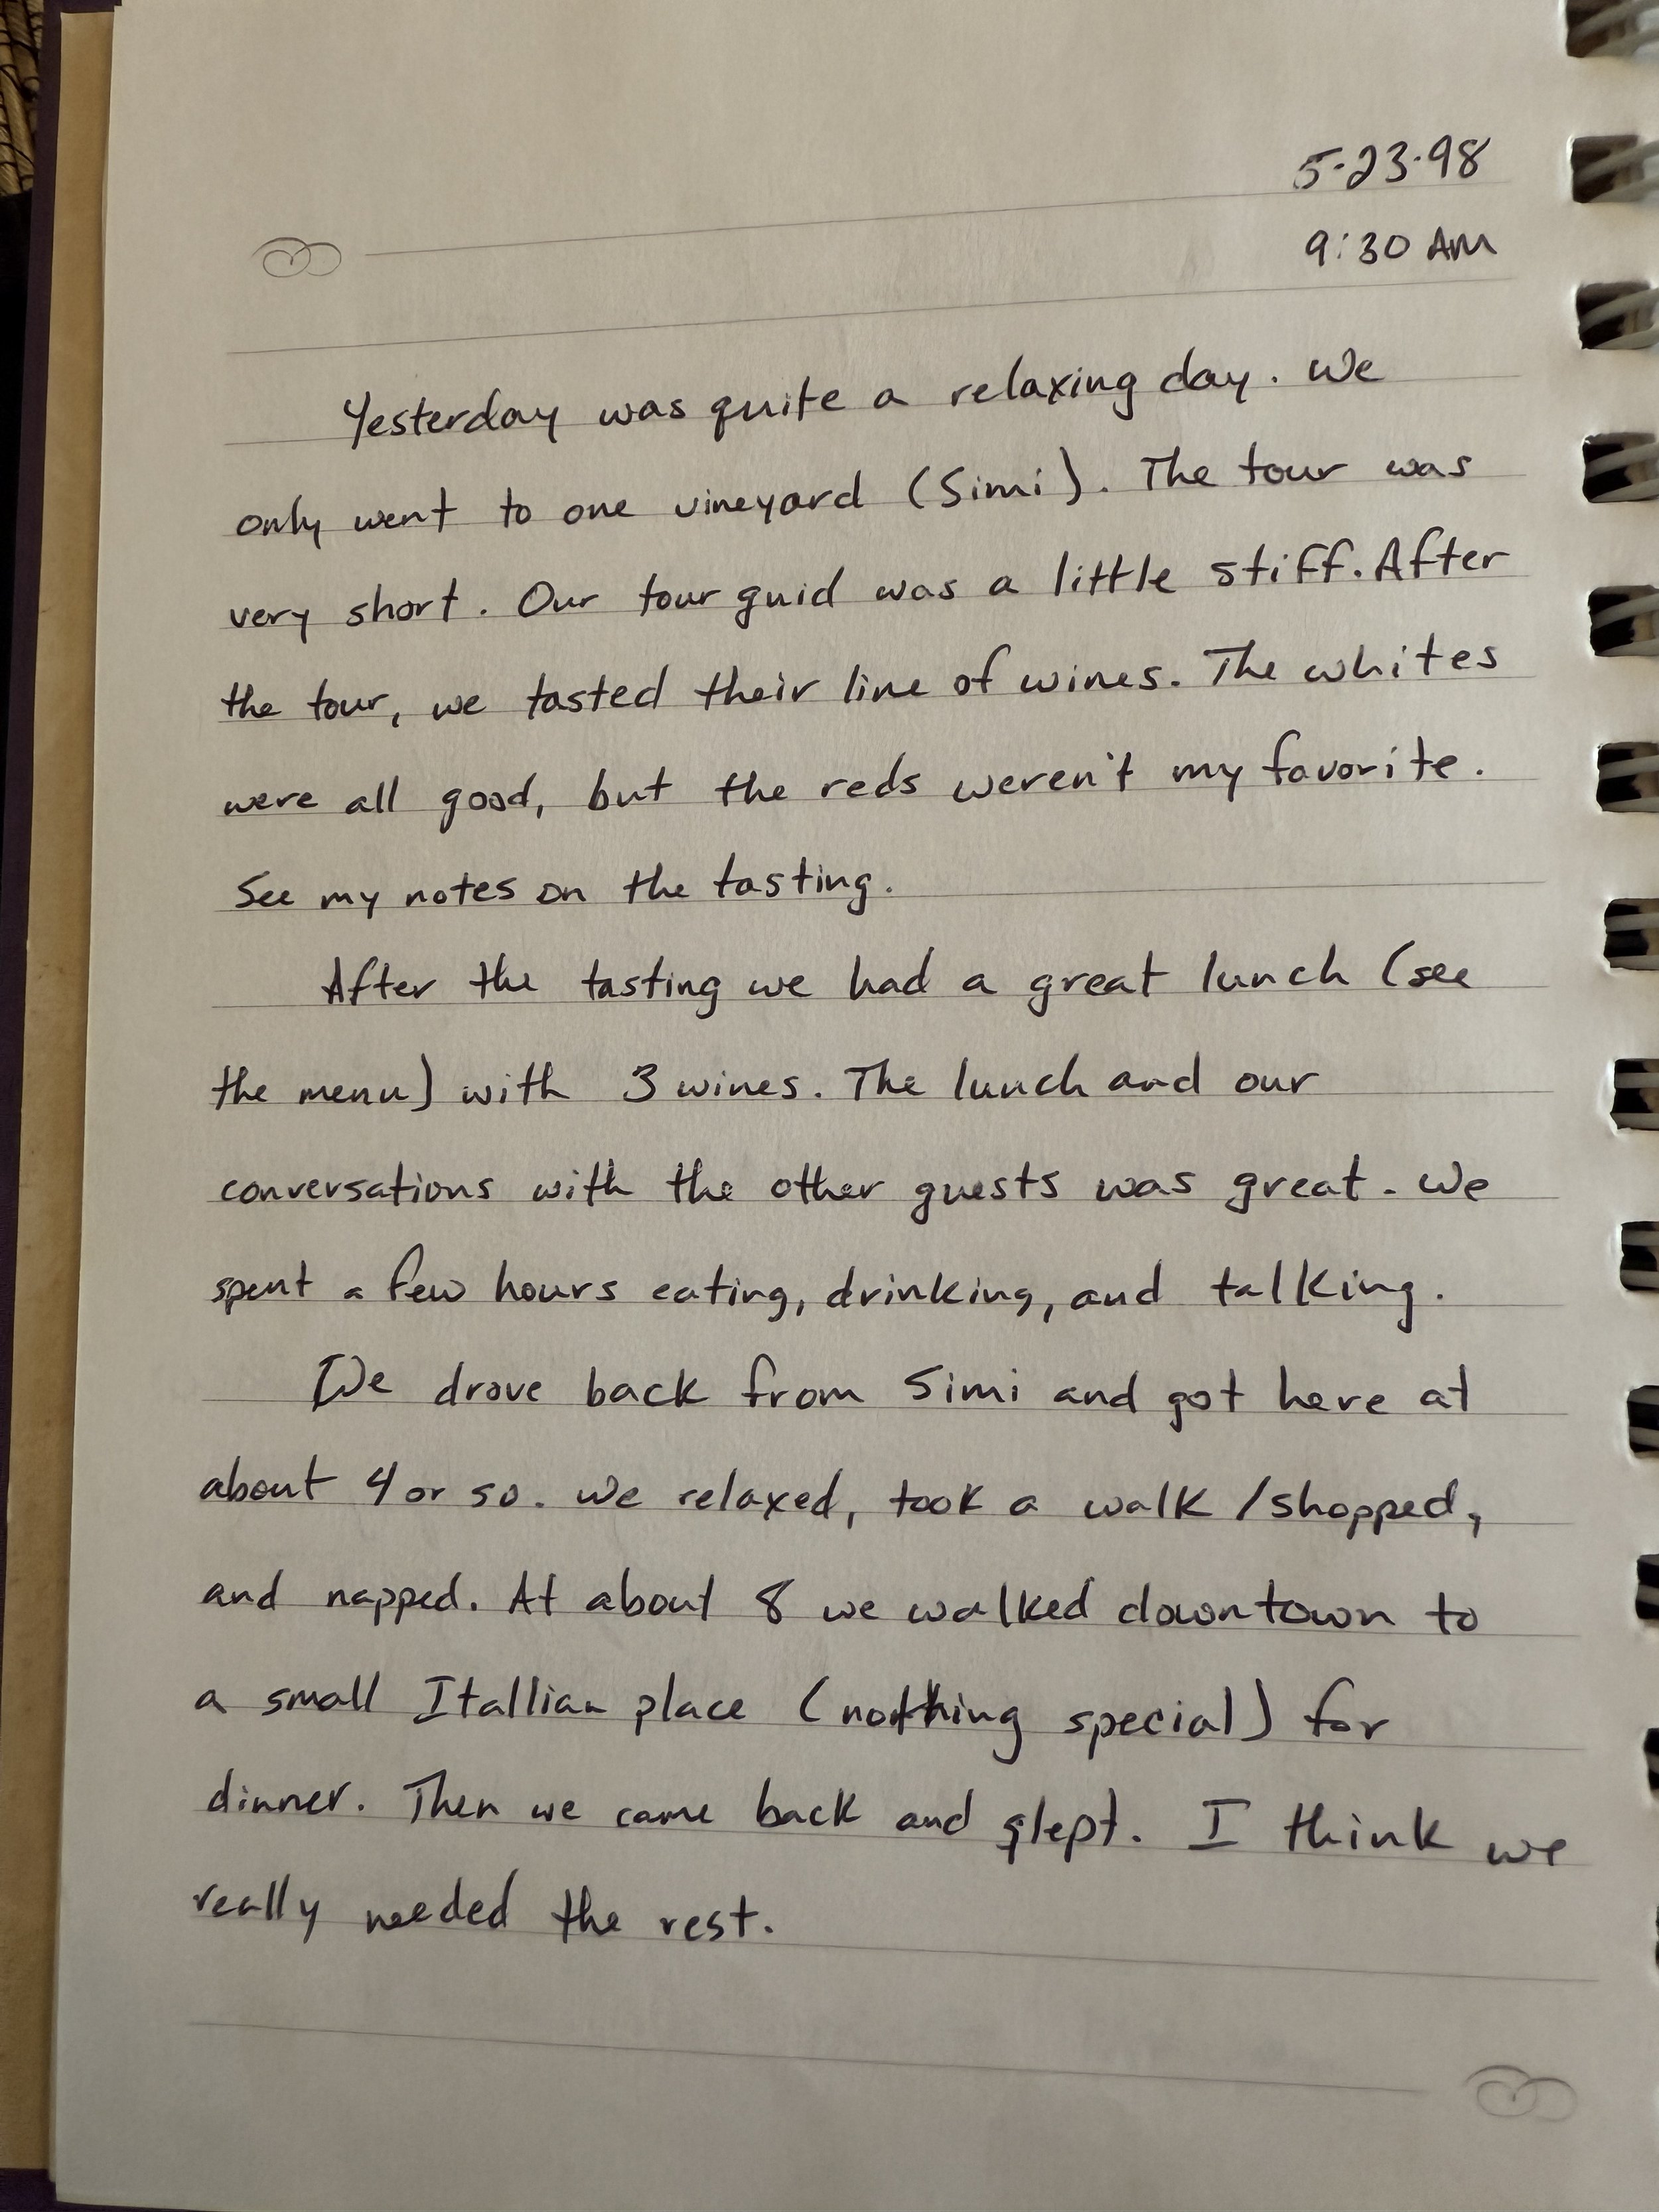 5-23-98
9:30 AM
Yesterday was quite a relaxing day. We
only went to one vineyard (Simi). The tour was
very short. Our tour guid was a little stiff. After
the tour, we tasted their line of wines. The whites
were all good, but the reds weren't my favorite.
See my notes on the tasting.
After the tasting we had a great lunch (see
the menu) with 3 wines. The lunch and our
conversations with the other guests was great. We
spent a few hours eating, drinking, and talking.
We drove back from Simi and got here at
about 4 or so. We relaxed, took a walk /shopped,
and napped. At about 8 we walked downtown to
a small Itallian place (nothing special) for
dinner. Then we came back and slept. I think we
really needed the rest.